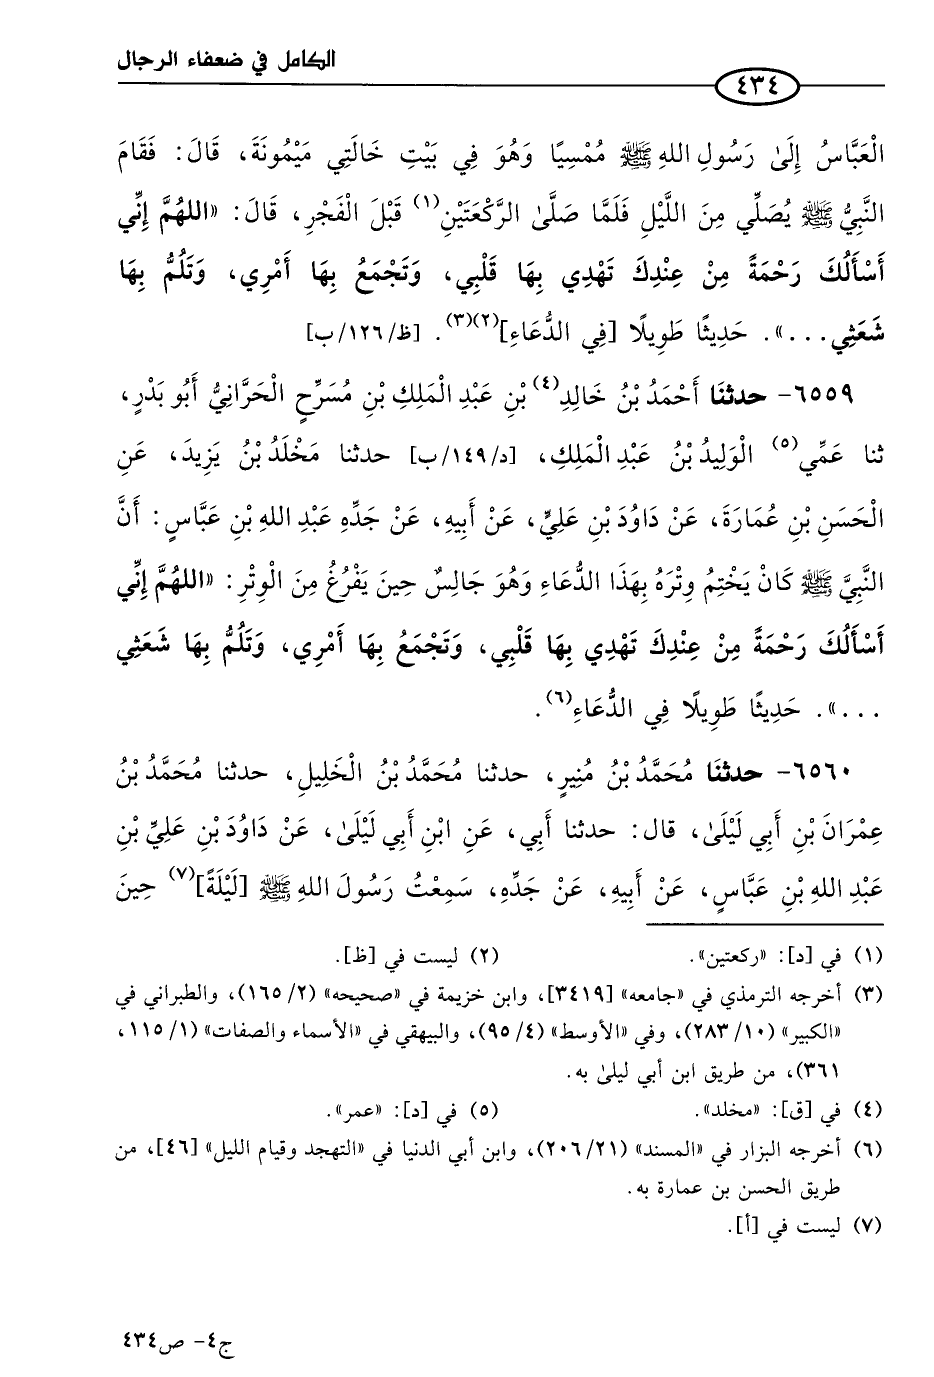 الكامل في ضعفاء الرجال
٤٣٤
الْعَبَّاسُ إِلَىٰ رَسُولِ اللهِ ﷺ مُمْسِيًا وَهُوَ فِي بَيْتِ خَالَتِي مَيْمُونَةَ، قَالَ: فَقَامَ
النَّبِيُّ ﷺ يُصَلِّي مِنَ اللَّيْلِ فَلَمَّا صَلَّىٰ الرَّكْعَتَيْنِ(١) قَبْلَ الْفَجْرِ، قَالَ: «اللهُمَّ إِنِّي
أَسْأَلُكَ رَحْمَةً مِنْ عِنْدِكَ تَهْدِي بِهَا قَلْبِي، وَتَجْمَعُ بِهَا أَمْرِي، وَتَلُمُّ بِهَا
شَعَثِي...». حَدِيثًا طَوِيلًا [فِي الدُّعَاءِ](٢)(٣). [ظ/١٢٦/ب]
٦٥٥٩- حدثنَا أَحْمَدُ بْنُ خَالِدِ(٤) بْنِ عَبْدِ الْمَلِكِ بْنِ مُسَرِّحٍ الْحَرَّانِيُّ أَبُو بَدْرٍ،
ثنا عَمِّي(٥) الْوَلِيدُ بْنُ عَبْدِ الْمَلِكِ، [د/١٤٩/ب] حدثنا مَخْلَدُ بْنُ يَزِيدَ، عَنِ
الْحَسَنِ بْنِ عُمَارَةَ، عَنْ دَاوُدَ بْنِ عَلِيٍّ، عَنْ أَبِيهِ، عَنْ جَدِّهِ عَبْدِ اللهِ بْنِ عَبَّاسٍ: أَنَّ
النَّبِيَّ ﷺ كَانْ يَخْتِمُ وِتْرَهُ بِهَذَا الدُّعَاءِ وَهُوَ جَالِسٌ حِينَ يَفْرُغُ مِنَ الْوِتْرِ: «اللهُمَّ إِنِّي
أَسْأَلُكَ رَحْمَةً مِنْ عِنْدِكَ تَهْدِي بِهَا قَلْبِي، وَتَجْمَعُ بِهَا أَمْرِي، وَتَلُمُّ بِهَا شَعَثِي
...». حَدِيثًا طَوِيلًا فِي الدُّعَاءِ(٦).
٦٥٦٠- حدثنَا مُحَمَّدُ بْنُ مُنِيرٍ، حدثنا مُحَمَّدُ بْنُ الْخَلِيلِ، حدثنا مُحَمَّدُ بْنُ
عِمْرَانَ بْنِ أَبِي لَيْلَىٰ، قال: حدثنا أَبِي، عَنِ ابْنِ أَبِي لَيْلَىٰ، عَنْ دَاوُدَ بْنِ عَلِيِّ بْنِ
عَبْدِ اللهِ بْنِ عَبَّاسٍ، عَنْ أَبِيهِ، عَنْ جَدِّهِ، سَمِعْتُ رَسُولَ اللهِ ﷺ [لَيْلَةً](٧) حِينَ
(١) في [د]: «ركعتين». (٢) ليست في [ظ].
(٣) أخرجه الترمذي في «جامعه» [٣٤١٩]، وابن خزيمة في «صحيحه» (٢/ ١٦٥)، والطبراني في
«الكبير» (١٠/ ٢٨٣)، وفي «الأوسط» (٤/ ٩٥)، والبيهقي في «الأسماء والصفات» (١/ ١١٥،
٣٦١)، من طريق ابن أبي ليلىٰ به.
(٤) في [ق]: «مخلد». (٥) في [د]: «عمر».
(٦) أخرجه البزار في «المسند» (٢١/ ٢٠٦)، وابن أبي الدنيا في «التهجد وقيام الليل» [٤٦]، من
طريق الحسن بن عمارة به.
(٧) ليست في [أ].
ج٤- ص٤٣٤